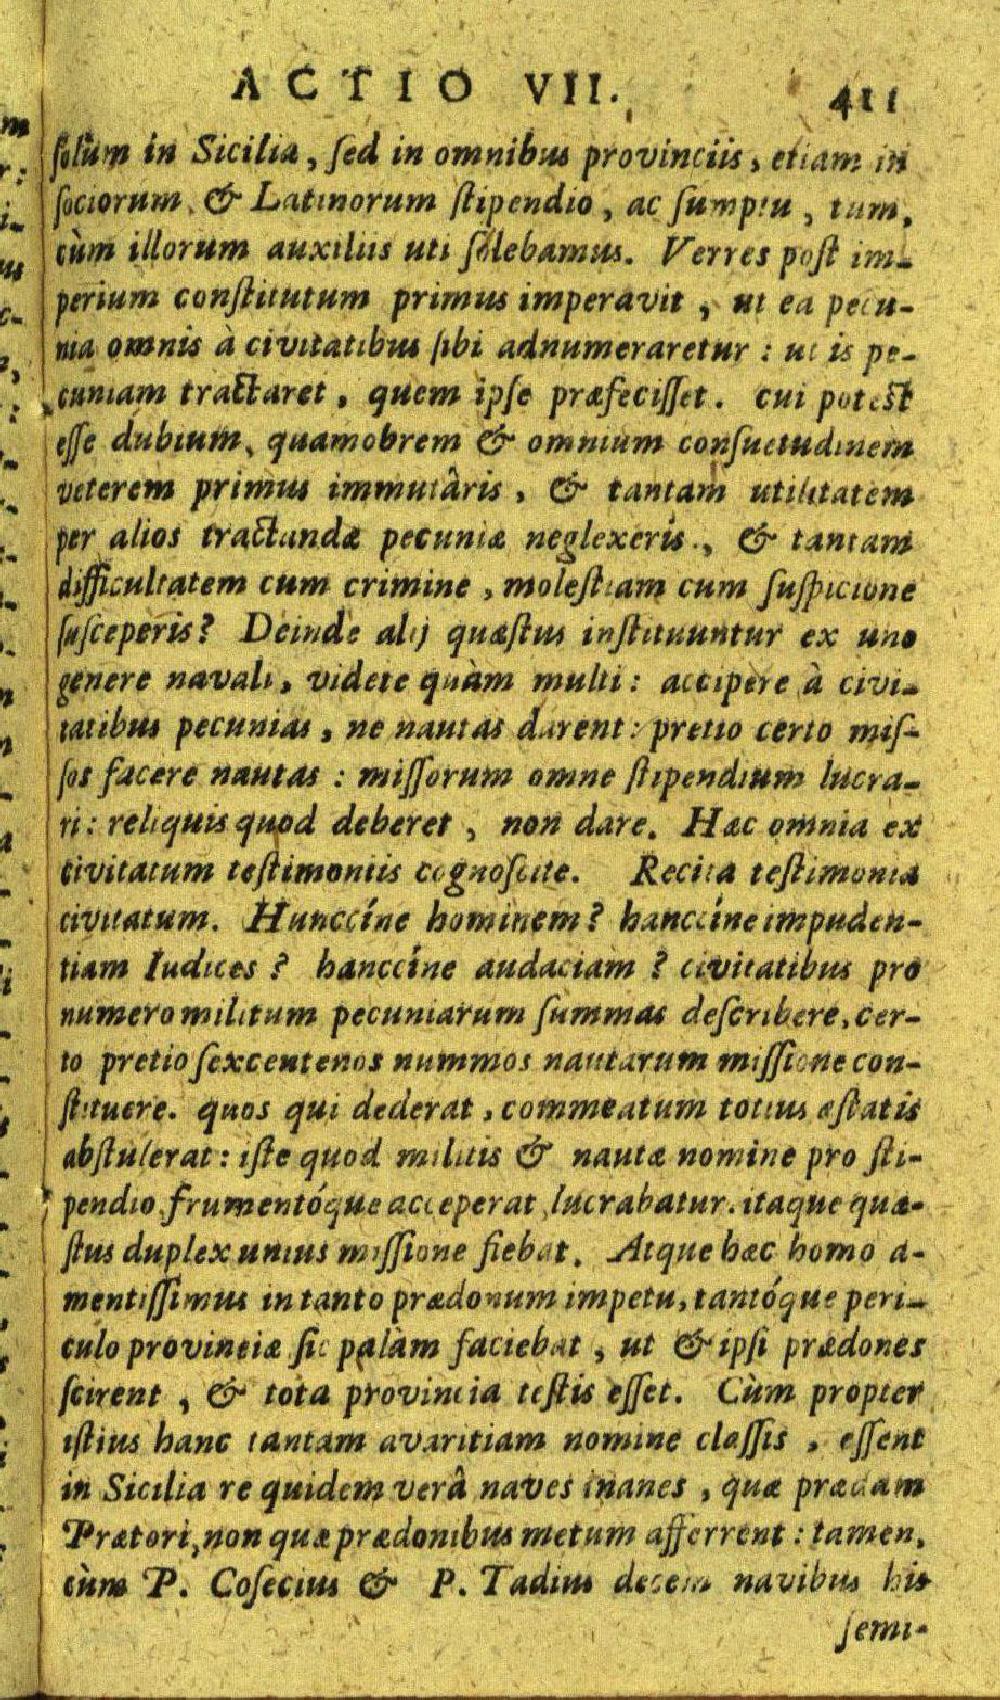 ACTIO VII. 411
solùm in Sicilia, sed in omnibus provinciis, etiam in
sociorum & Latinorum stipendio, ac sumptu, tum,
cùm illorum auxiliis uti solebamus. Verres post im-
perium constitutum primus imperavit, ut ea pecu-
nia omnis à civitatibus sibi adnumeraretur: ut is pe-
cuniam tractaret, quem ipse præfecisset. cui potest
esse dubium, quamobrem & omnium consuetudinem
veterem primus immutâris, & tantam utilitatem
per alios tractandæ pecuniæ neglexeris, & tantam
difficultatem cum crimine, molestiam cum suspicione
susceperis? Deinde alij quæstus instituuntur ex uno
genere navali, videte quàm multi: accipere à civi-
tatibus pecunias, ne nautas darent: pretio certo mis-
sos facere nautas: missorum omne stipendium lucra-
ri: reliquis quod deberet, non dare. Hæc omnia ex
civitatum testimoniis cognoscite. Recita testimonia
civitatum. Hunccíne hominem? hanccíne impuden-
tiam Iudices? hanccíne audaciam? civitatibus pro
numero militum pecuniarum summas describere, cer-
to pretio sexcentenos nummos nautarum missione con-
stituere. quos qui dederat, commeatum totius æstatis
abstulerat: iste quod militis & nautæ nomine pro sti-
pendio frumentóque acceperat, lucrabatur. itaque quæ-
stus duplex unius missione fiebat. Atque hæc homo a-
mentissimus in tanto prædonum impetu, tantóque peri-
culo provinciæ sic palàm faciebat, ut & ipsi prædones
scirent, & tota provincia testis esset. Cùm propter
istius hanc tantam avaritiam nomine classis, essent
in Sicilia re quidem verâ naves inanes, quæ prædam
Prætori, non quæ prædonibus metum afferrent: tamen,
cùm P. Cosecius & P. Tadius decem navibus his
semi-